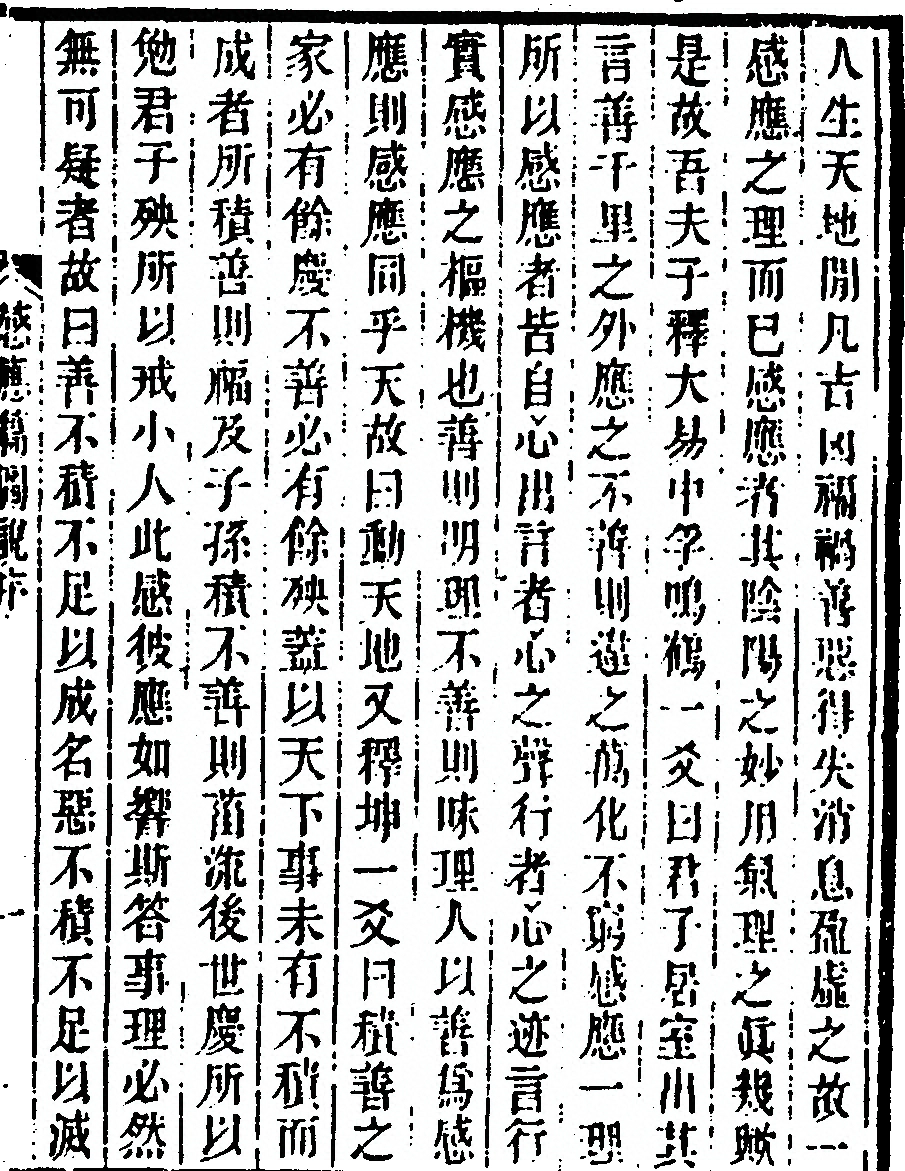 人生天地間凡吉凶福禍善惡得失消息盈虛之故一
感應之理而已感應者其陰陽之妙用氣理之眞幾歟
是故吾夫子釋大易中孚鳴鶴一爻曰君子居室出其
言善千里之外應之不善則違之萬化不窮感應一理
所以感應者皆自心出言者心之聲行者心之迹言行
實感應之樞機也善則明理不善則昧理人以善爲感
應則感應同乎天故曰動天地又釋坤一爻曰積善之
家必有餘慶不善必有餘殃蓋以天下事未有不積而
成者所積善則福及子孫積不善則菑流後世慶所以
勉君子殃所以戒小人此感彼應如響斯答事理必然
無可疑者故曰善不積不足以成名惡不積不足以滅
感應篇圖說序